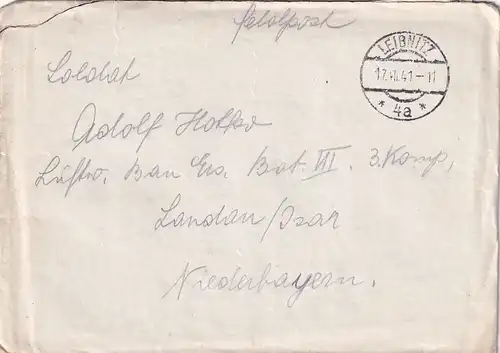 Feldpost
LEIBNITZ
17.11.41-11
* 4a *
Soldat
Adolf Hotko
Luftw. Bau Ers. Bat. III. 3. Komp,
Landau/Isar
Niederbayern.